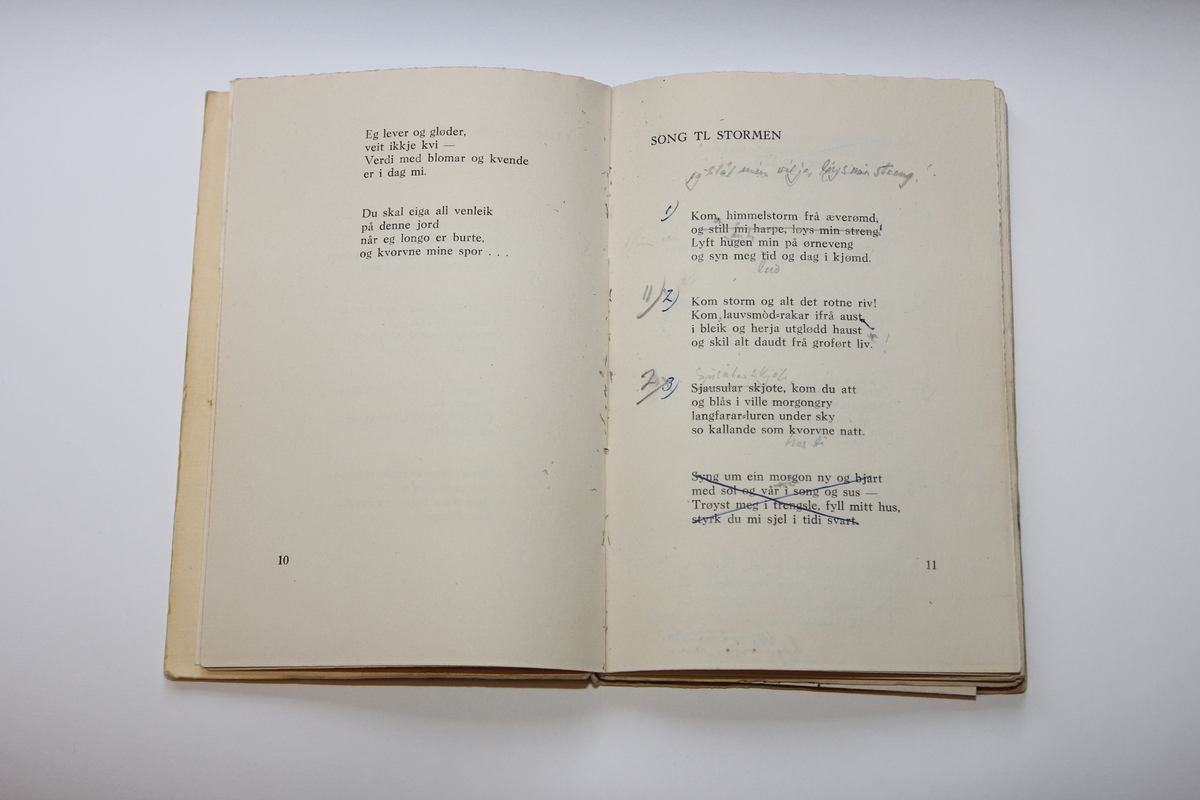 Eg lever og gløder,
veit ikkje kvi —
Verdi med blomar og kvende
er i dag mi.
Du skal eiga all venleik
på denne jord
når eg longo er burte,
og kvorvne mine spor . . .
10
SONG TL STORMEN
og stål min vilje, løys min streng!
1)
Kom, himmelstorm frå æverømd,
og still mi harpe, løys min streng!
Lyft hugen min på ørneveng
og syn meg tid og dag i kjømd.
11/ 2)
Kom storm og alt det rotne riv!
Kom, lauvsmòd-rakar ifrå aust
i bleik og herja utglødd haust
og skil alt daudt frå groført liv.
2/ 3)
Sjausular skjote, kom du att
og blås i ville morgongry
langfarar-luren under sky
so kallande som kvorvne natt.
Syng um ein morgon ny og bjart
med sol og vår i song og sus —
Trøyst meg i trengsle, fyll mitt hus,
styrk du mi sjel i tidi svart.
11